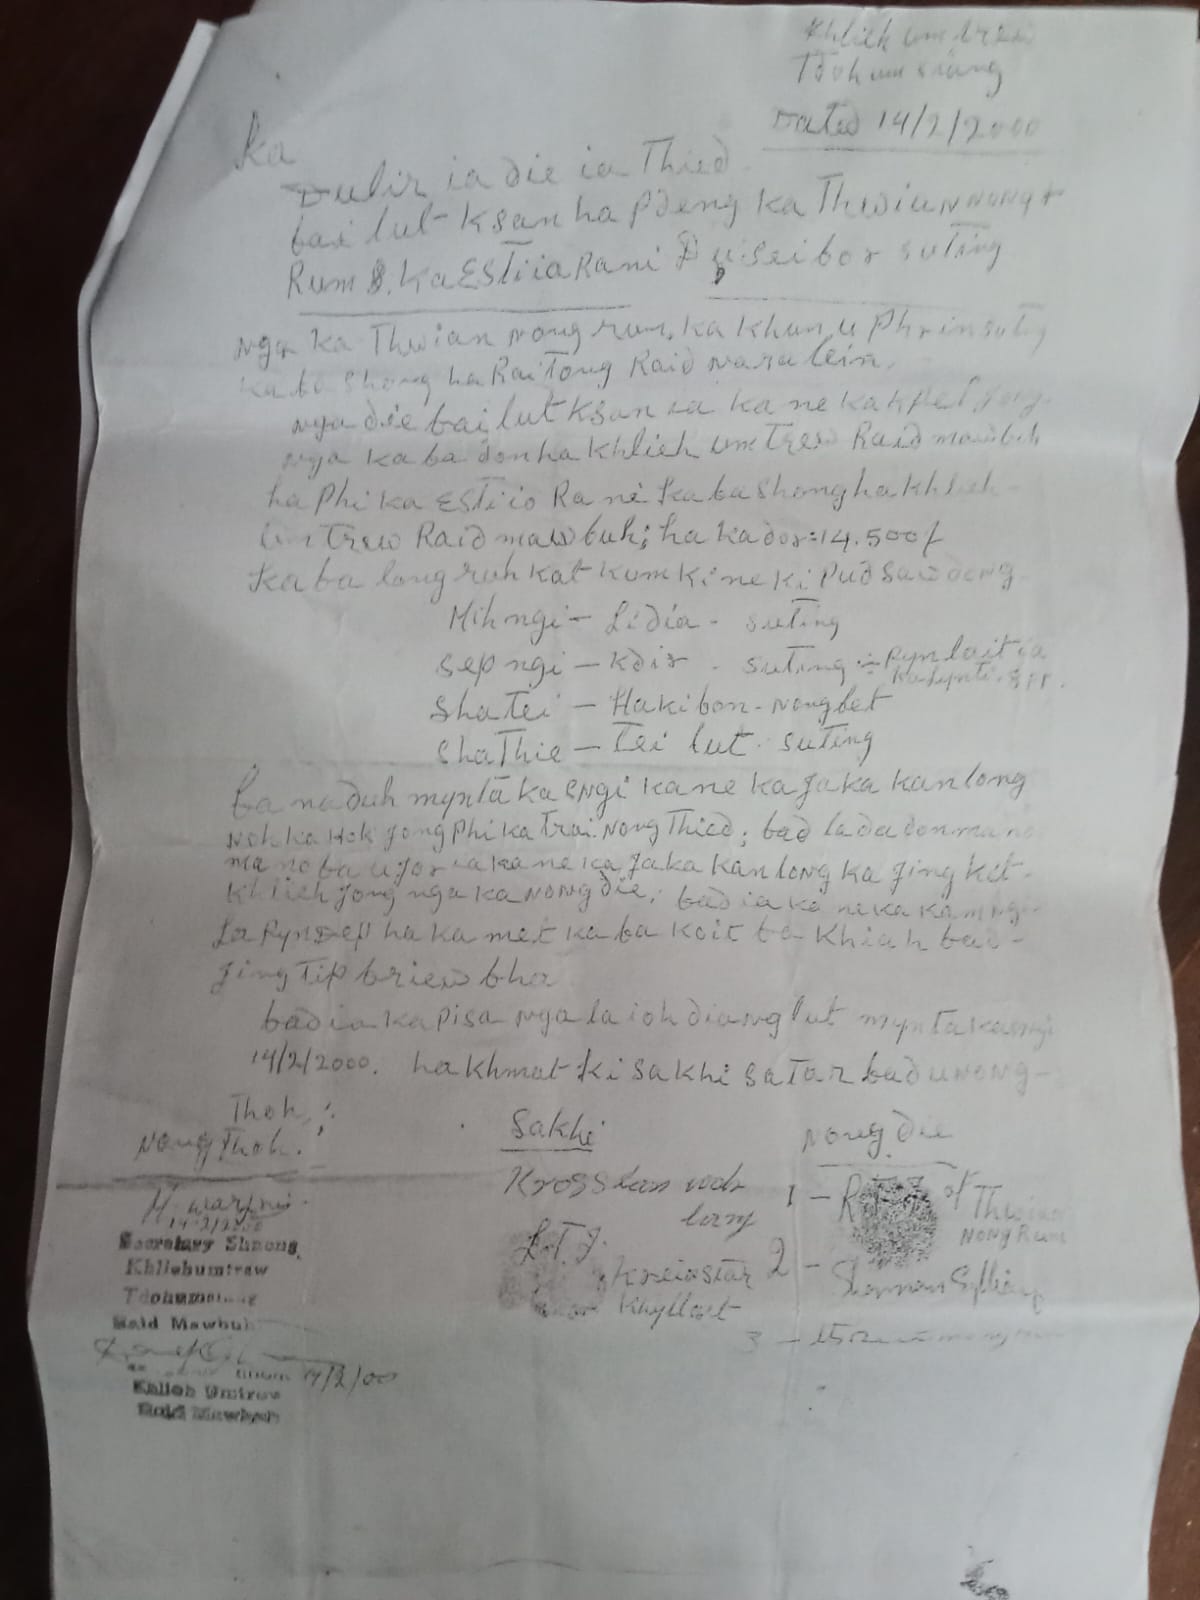 Khlieh umtrew
Tdohumsiang
Dated 14/2/2000
Ka
Dulir ia die ia Thied
bai lut Ksan ha Pdeng ka Thwian Nong
Rum &. Ka Estiia Rani D u Seibor suting
Nga ka Thwian Nongrum, ka khun u Phrin suting
ka ba shong ha Raitong Raid
nga die bai lut Ksan ia ka ne ka kper jong
nga ka ba don ha Khlieh umtrew Raid mawbuh
ha Phi ka Estiio Rani ka ba shong ha khlieh-
umtrew Raid mawbuh; ha ka dor:14.500/
ka ba long ruh kat kum ki ne ki Pud sawdong-
Mih ngi - Lidia - suting
Sep ngi - Kdir - suting ÷ Pynlait ia
ka lynti
Sha Tei - Ha ki bon - Nongbet
Sha Thie - Tei lut - suting
ba naduh mynta ka sngi ka ne ka Jaka kan long
Noh ka Hok Jong Phi ka trai Nong Thied; bad lada don mano
mano ba ujor ia ka ne ka Jaka kan long ka Jing kit-
Khlieh Jong nga ka Nong die; bad ia ka ne ka kam nga
La Pyndep ha ka met ka ba koit ba Khiah bad-
Jing Tip briew bha
bad ia ka Pisa nga la ioh diang lut mynta ka sngi
14/2/2000. ha khmat ki sakhi satar bad u Nong-
Thoh;
Nong Thoh.
Sakhi
Nong die
14-2/2000
Secretary Shnong
Khliehumtraw
Raid Mawbuh
14/2/00
Khlieh Umtrew
Raid Mawbuh
L.T.I.
Kreiostar
Khyllait
1 - R.T.I of Thwian
Nong Rum
2 -
3 -